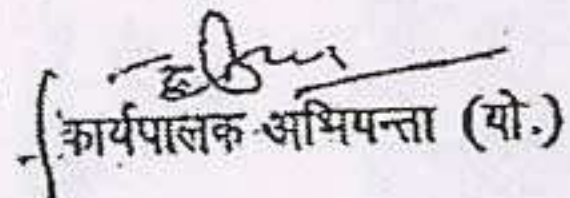 कार्यपालक अभियन्ता (यो.)